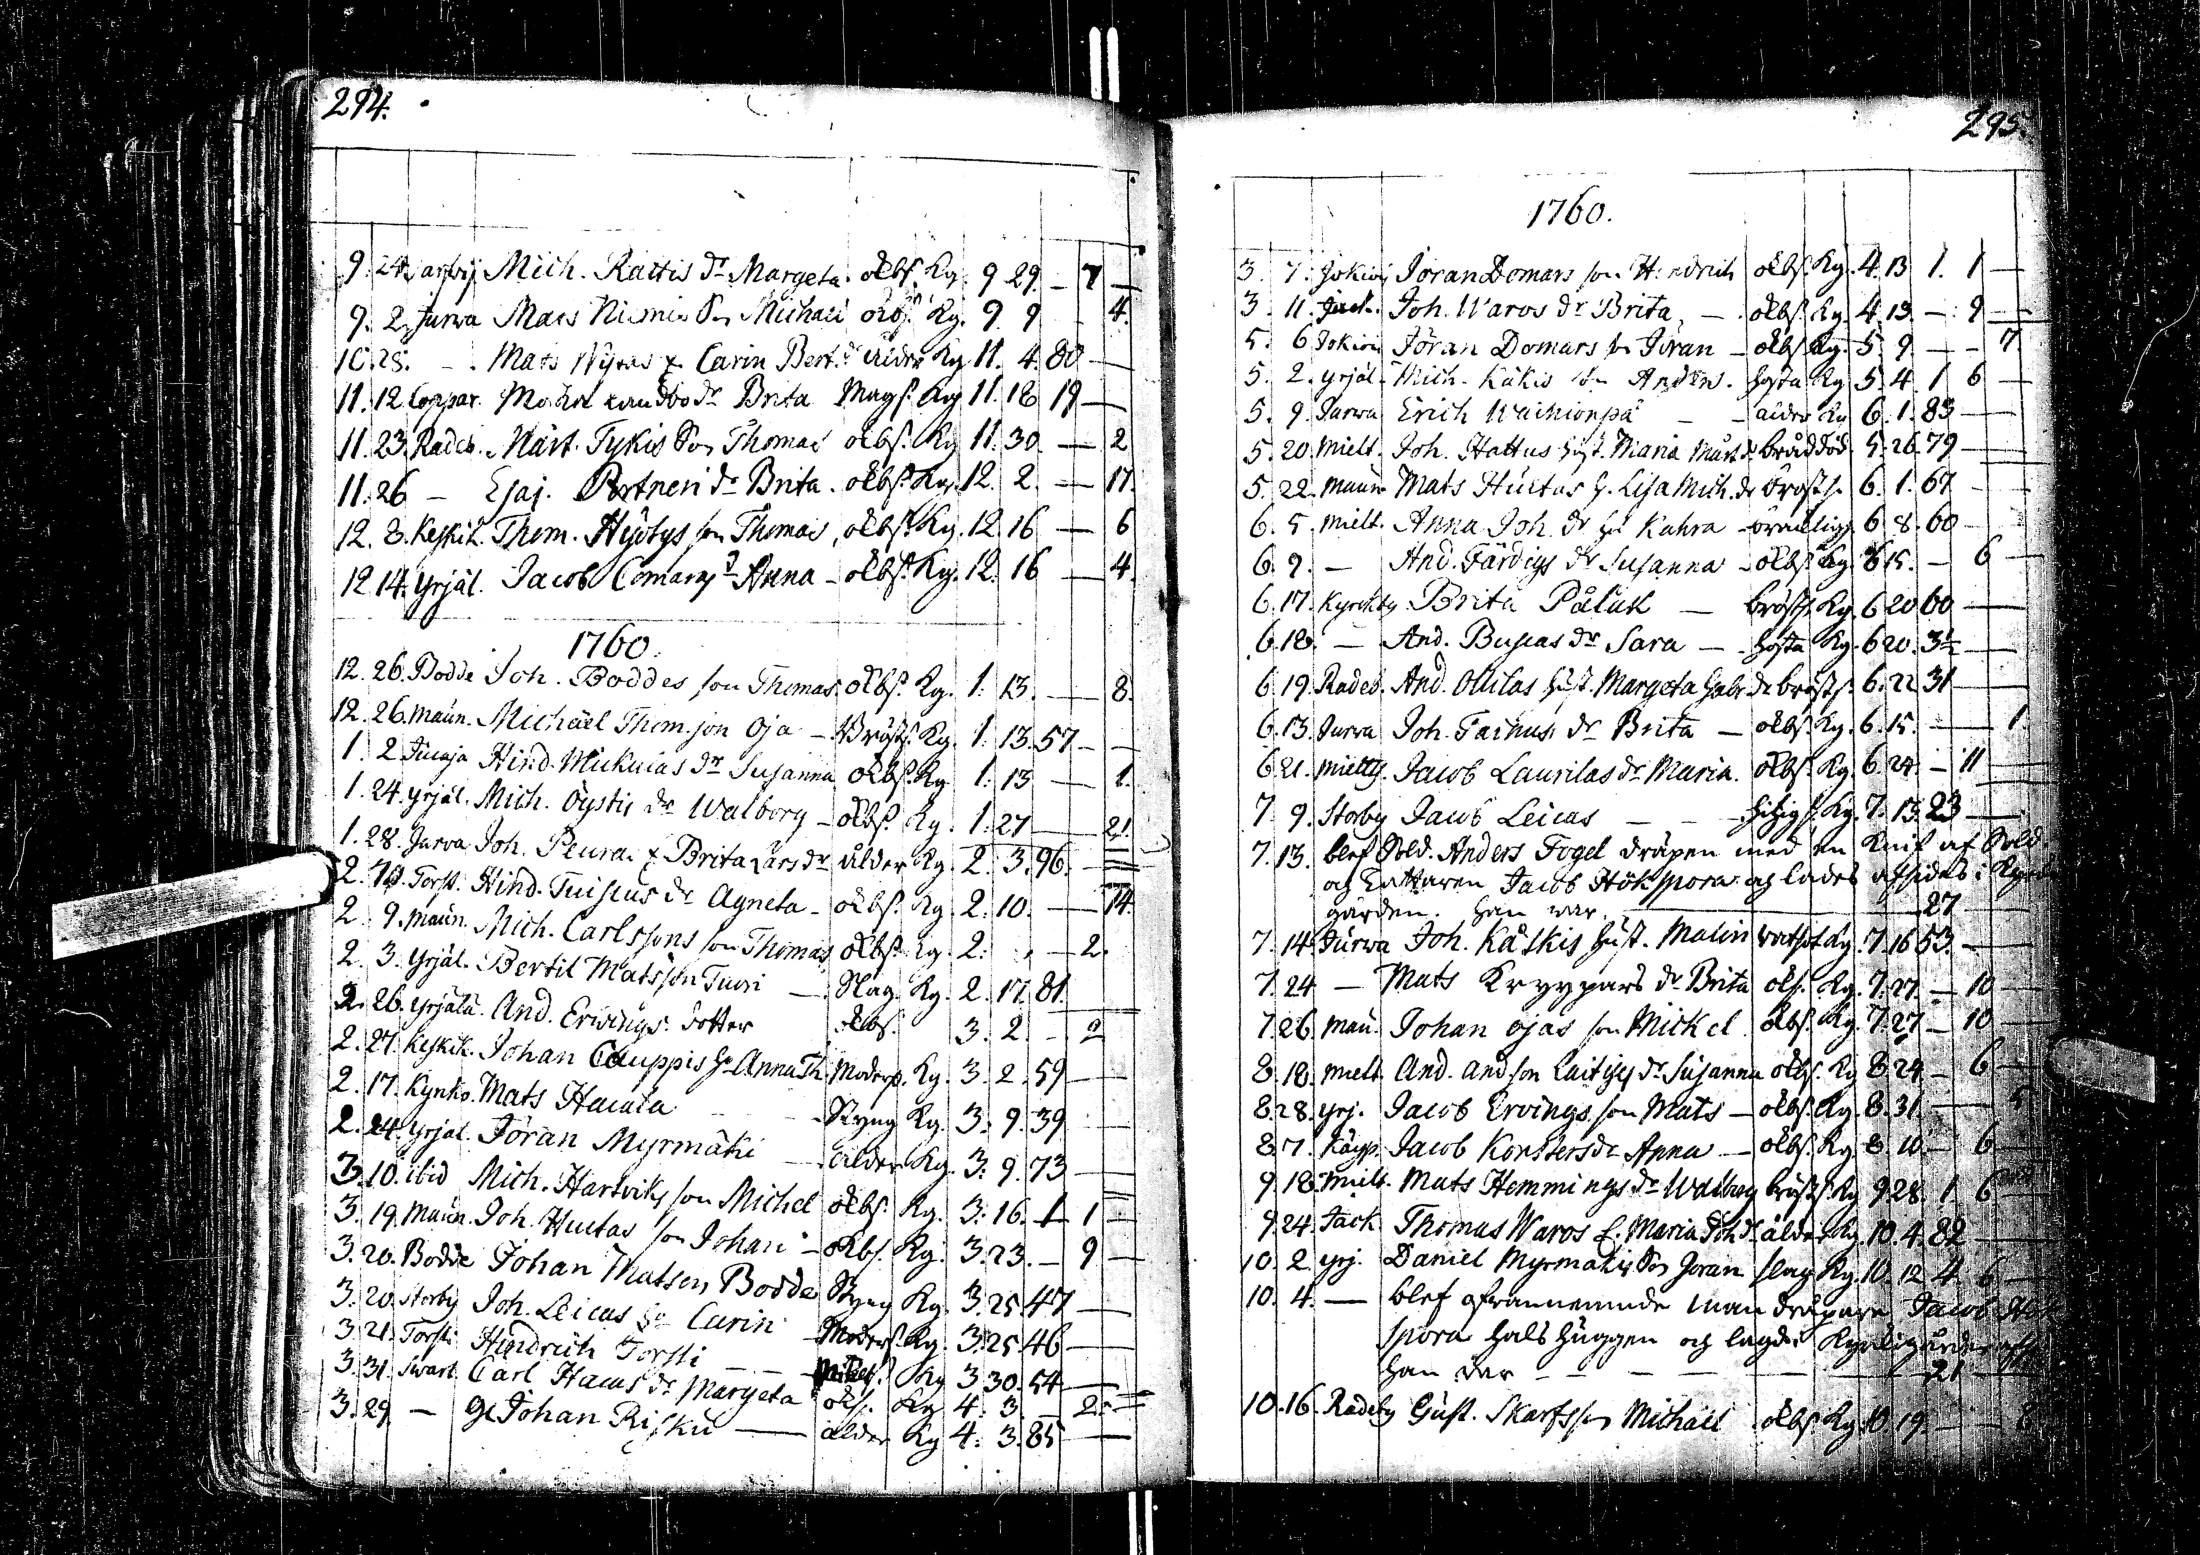 294.
9. 24 Mich. Rattis dr Margeta. okbs. Kg. 9 29. — 7 —
9. 2. Jurva Mats Niemis Son Michaël okbs. Kg. 9 9 4.
10. 28. — Mats Nyras Carin Bert. ålder Kg 11. 4. 80 —
11. 12. Brita Mags. Kg 11. 18 19 —
11. 23. Radeb. Märt. Tykis Son Thomas okbs. Kg 11. 30. — 2
11. 26 — Esaj. Portneri dr Brita. okbs. Kg. 12. 2. — 17.
12. 8. Keskik. Thom. Hyötys son Thomas, okbs. Kg. 12. 16 — 6
12 14. Yrjäl. Jacob Comarys dr Anna — okbs. Kg. 12. 16 — 4.
1760.
12. 26. Bodde Joh. Boddes son Thomas okbs. Kg. 1. 13. — 8.
12. 26. Maun. Michaël Thom.son Oja — Bröstf. Kg. 1. 13. 57 — —
1. 2. Hind. Mickulas dr Susanna okbs. Kg. 1. 13 — 1.
1. 24. Yrjäl. Mich. Öystis dr Walborg — okbs. Kg. 1. 27 — 21.
1. 28. Jurva Joh. Peura Brita Larsdr ålder Kg 2. 3. 96. —
2. Torst. Hind. Tuiscus dr Agneta — okbs. Kg 2. 10. — 14.
2. 9. Maun. Mich. Carlssons son Thomas okbs. Kg. 2. — 2.
2. 3. Yrjäl. Bertil Matsson Turi — Slag Kg. 2. 17. 81.
2. 26. Yrjälä. And. Ervings dotter okbs. 3. 2. — 2
2. 27. Keskik. Johan Cauppis h. Anna Th. Moderp. Kg. 3. 2. 59 —
2. 17. Kynko. Mats Hacala — Styng Kg. 3. 9. 39
2. 24. Yrjäl. Jöran Myrmäki — ålder Kg. 3. 9. 73 —
3. 10. ibid Mich. Hartviks son Michel okbs. Kg. 3. 16. 1 1 —
3. 19. Maun. Joh. Huctas son Johan — okbs. Kg. 3. 23. — 9 —
3. 20. Bodde Johan Matsson Bodde Styng Kg. 3. 25. 47 —
3. 20. Storby Joh. Leicas h. Carin — Moders. Kg. 3. 25. 46 —
3. 21. Torsti Hindrich Torsti — Kg 3 30. 54 —
3. 31. Svart. Carl Hacus dr Margeta okbs. Kg 4. 3. — 2. —
3. 29 — G. Johan Risku — ålder Kg 4. 3. 85 —
295.
1760.
3. 7. Jokip. Jöran Domars son Hindrich okbs. Kg. 4. 13 1. 1 —
3. 11. Jack. Joh. Waros dr Brita, — okbs. Kg. 4. 13. — 9 —
5. 6 Jokip. Jöran Domars son Jöran — okbs. Kg. 5. 9 — — 7.
5. 2. Yrjäl. Mich. Käkis son Anders. hosta Kg 5. 4. 1 6 —
5. 9. Jurva Erich Wainionpä — ålder Kg 6. 1. 83 —
5. 20. Mielt. Joh. Hattus hust. Maria Märt. dr bråddöd. 5. 26. 79 —
5. 22. Maun. Mats Huctas h. Lisa Mich. dr bröstf. 6. 1. 67 —
6. 5. Mielt. Anna Joh. dr Kahra — 6. 8. 60 —
6. 9. — And. Färdigs dr Susanna — okbs. Kg. 6 15. — 6 —
6. 17. Kyrkby Brita Påluk — bröstf. Kg. 6 20 60 —
6. 18. — And. Buscas dr Sara — hosta Kg. 6 20. 3½ —
6. 19. Radeb. And. Ollilas hust. Margeta Gabr. dr bröstf. 6. 22 31 —
6. 13. Jurva Joh. Fainus dr Brita — okbs. Kg. 6. 15. — 1.
6. 21. Mielty. Jacob Laurilas dr Maria. okbs. Kg. 6. 24. — 11 —
7 9. Storby Jacob Leicas — — hitzigf. Kg. 7. 13. 23 —
7. 13. blef Sold. Anders Fogel dräpen med en Knif af Sold.
och Jacob Hökspora och lades afsides i Kyrko
gården. han war — 27 —
7. 14. Jurva Joh. Käkis hust. Malin wattsot Kg. 7. 16 53. —
7. 24 — Mats Kryypars dr Brita okbs. Kg. 7. 27. — 10 —
7. 26. Mau. Johan Ojas son Mickel okbs. Kg. 7. 27 — 10 —
8. 18. Mielt. And. Andson Laitiys dr Susanna okbs. Kg 8. 24 — 6 —
8. 28. Yrj. Jacob Ervings son Mats — okbs. Kg. 8. 31. — 5
8. 7. Käyp. Jacob Konsters dr Anna — okbs. Kg. 8. 10. — 6 —
9. 18. Mielt. Mats Hemmings dr Walborg bröstf. Kg 9 28. 1. 6
9. 24. Jack Thomas Waros E. Maria Joh. dr ålder Kg. 10. 4. 82 —
10. 2. Yrj. Daniel Myrmäkis Son Jöran slag Kg. 10. 12 4. 6 —
10. 4. — blef ofvannemnde mandråpare Jacob Hök
spora halshuggen och lagd i Kyrkogården
han war — — — — 21 —
10. 16. Radeby Gust. Skarfs son Michaël okbs. Kg. 10. 19. — 8